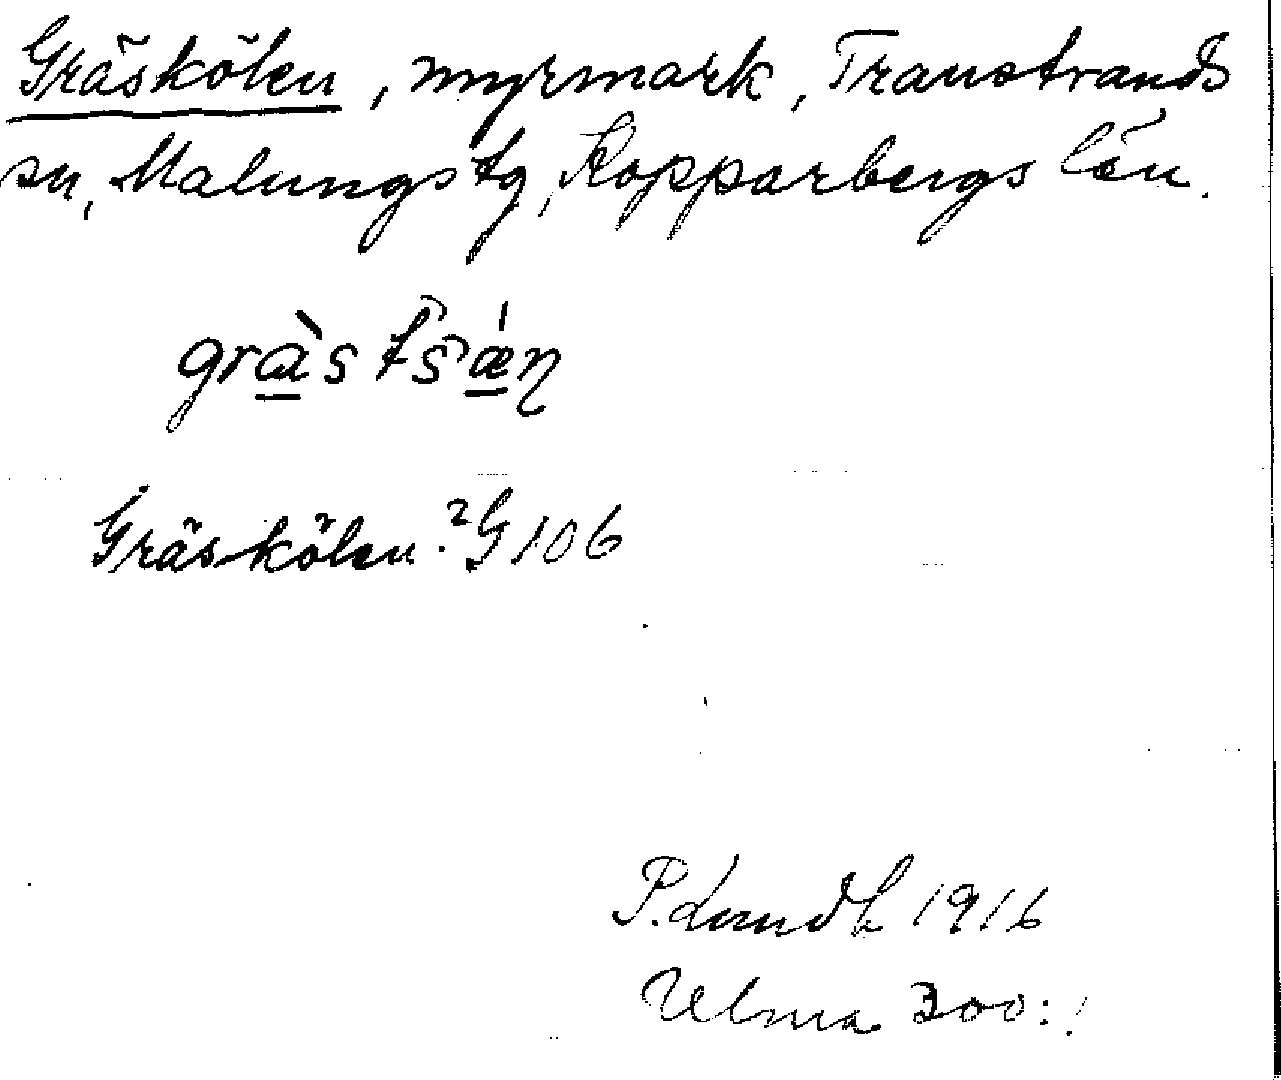 Gräskölen, myrmark, Transtrands
sn, Malungs tg, Kopparbergs län.
grà̱s tsǽ̱ŋ
Gräskölen. ²G 106
P. Lundh 1916
Ulma 300:1